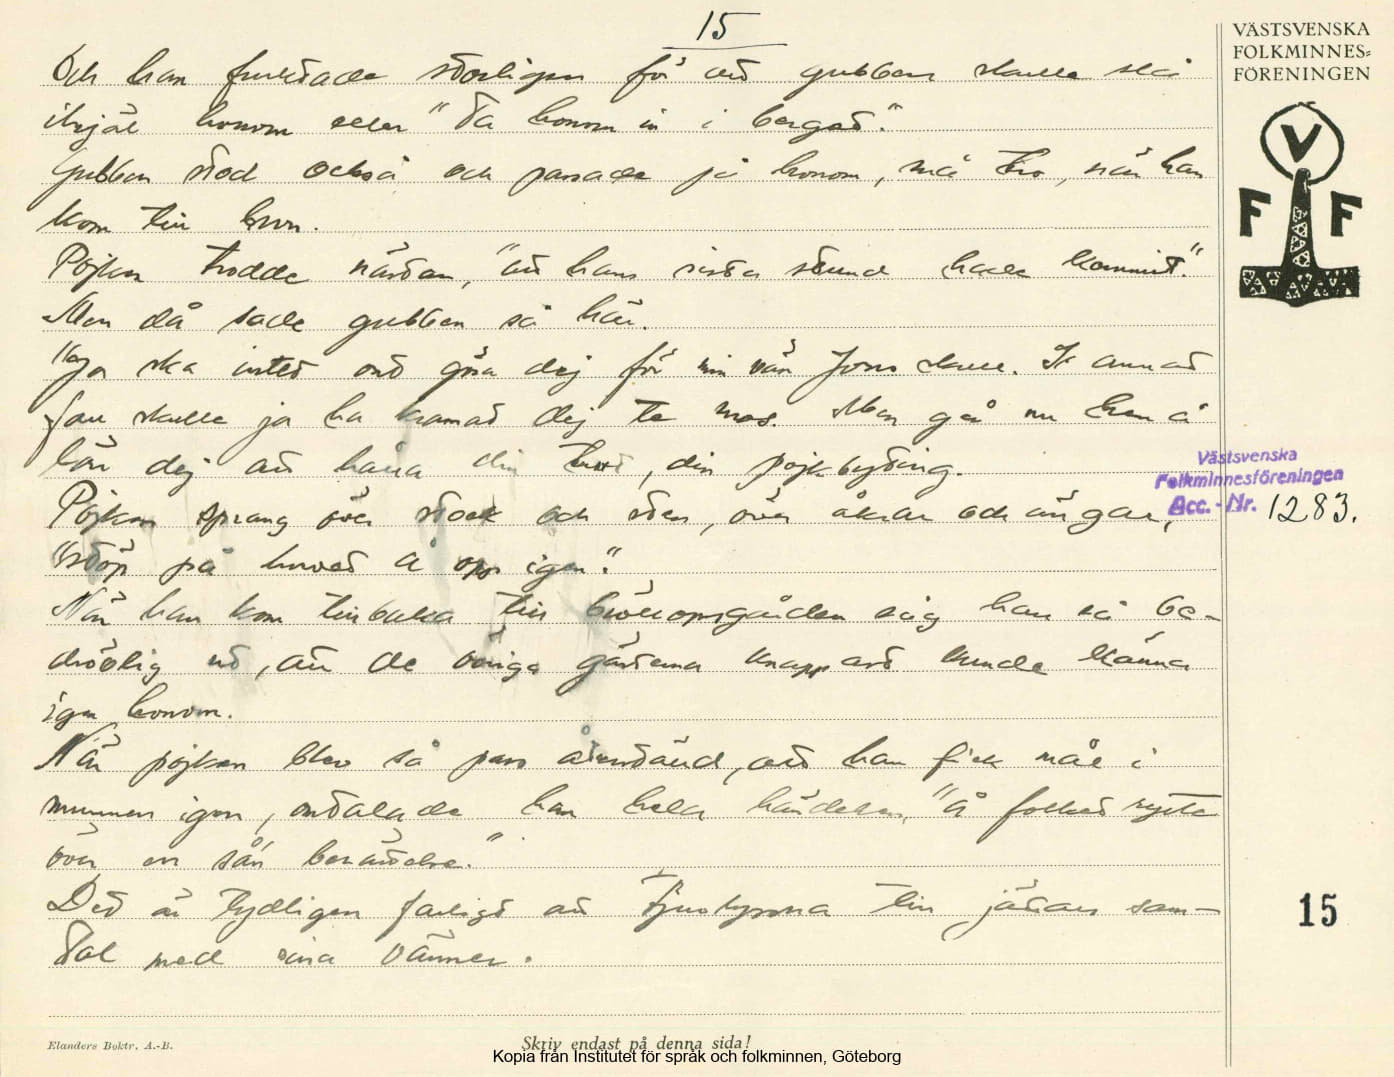 15
VÄSTSVENSKA
FOLKMINNES=
FÖRENINGEN
V
F F
Och han fruktade storligen för att gubben skulle slå
ihjäl honom eller "ta honom in i berget".
Gubben stod också och passade på honom, må tro, när han
kom till bron.
Pojken trodde nästan, "att hans sista stund hade kommit".
Men då sade gubben så här.
"Ja ska intet ont göra dej för min vän Jons skull. I annat
fall skulle ja ha kramat dej te mos. Men gå nu hem å
lär dej att hålla din trut, din pojkbyting.
Pojken sprang över stock och sten, över åkrar och ängar,
"stöp på huvet å opp igen".
När han kom tillbaka till bröllopsgården såg han så be-
drövlig ut, att de övriga gästerna knappast kunde känna
igen honom.
När pojken blev så pass återställd, att han fick mål i
munnen igen, omtalade han hela händelsen, "å folket ryste
över en sån berättelse."
Det är tydligen farligt att tjuvlyssna till jättars sam-
tal med sina vänner.
Västsvenska
Folkminnesföreningen
Acc. - Nr. 1283.
15
Elanders Boktr. A.-B.
Skriv endast på denna sida!
Kopia från Institutet för språk och folkminnen, Göteborg